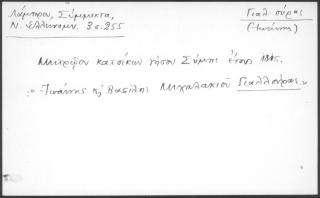 Λάμπρου, Σύμμεικτα,
Ν. Ελληνομν. 3 σ. 255
Γιαλ ούρας
(Ἰωάννης)
Μητρῷον κατοίκων νήσου Σύμης ἔτους
"Ἰωάννης κ Βασίλης Μιχαλακιοῦ Γιαλλούρας"